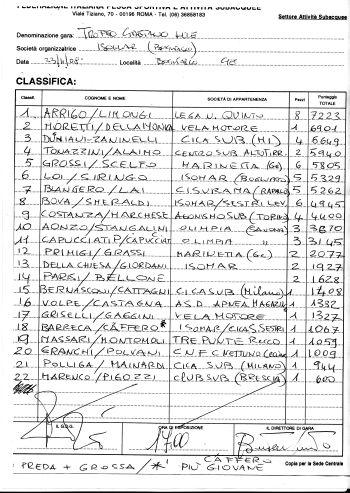 FEDERAZIONE ITALIANA PESCA SPORTIVA E ATTIVITÀ SUBACQUEE
Viale Tiziano, 70 - 00196 ROMA - Tel. (06) 36858183
Settore Attività Subacquee
Denominazione gara: TROFEO GAETANO
Società organizzatrice ISOMAR (BOGLIASCO)
Data Località BOGLIASCO GE
CLASSIFICA:
Classif. COGNOME E NOME SOCIETÀ DI APPARTENENZA Pezzi Punteggio TOTALE
1 ARRIGO/LIMONGI LEGA N. QUINTO 8 7223
2 MORETTI/DELLAMONICA VELAMOTORE 1 6901
3 ZANINELLI CICA SUB (MI) 4 6649
4 TONAZZINI/ALAIMO CENTRO SUB ALTO TIRR. 2 5940
5 GROSSI/SCELFO MARINETTA (GE) 6 5805
6 LOI/SIRINGO ISOMAR (BOGLIASCO) 5 5329
7 BIANGERO/LAI CISURAMA (RAPALLO) 5 5262
8 BOVA/SHERALDI ISOMAR/SESTRI LEV. 6 4945
9 COSTANZA/MARCHESE (TORINO) 4 4400
10 AONZO/STANGALINI OLIMPIA (SAVONA) 3 3870
11 CAPUCCIATI P/CAPUCCIATI OLIMPIA " 3 3145
12 PRIMIGI/GRASSI MARINETTA (GE) 2 2077
13 DELLA CHIESA/GIORDANI ISOMAR 2 1927
14 PARISI/BELLONE 2 1628
15 BERNASCONI/CATTAGNI CICASUB (MILANO) 1 1408
16 VOLPE/CASTAGNA A.S.D. APNEA MAGAZINE 1 1332
17 GRISELLI/GAGGINI VELAMOTORE 1 1327
18 BARRECA/CAFFERO* ISOMAR/CICA S. SESTRI 1 1067
19 MASSARI/MONTOMOLI TRE PUNTE RECCO 1 1059
20 GRANCHI/POLVANI C.N.F.C. NETTUNO 1 1009
21 POLLIGA/MAINARDI CICA SUB (MILANO) 1 944
22 MARENCO/PIGOZZI CLUB SUB (BRESCIA) 1 600
IL G.D.G. ORA DI ESPOSIZIONE IL DIRETTORE DI GARA
17,00
PREDA + GROSSA/* CAFFERO
PIÙ GIOVANE
Copia per la Sede Centrale